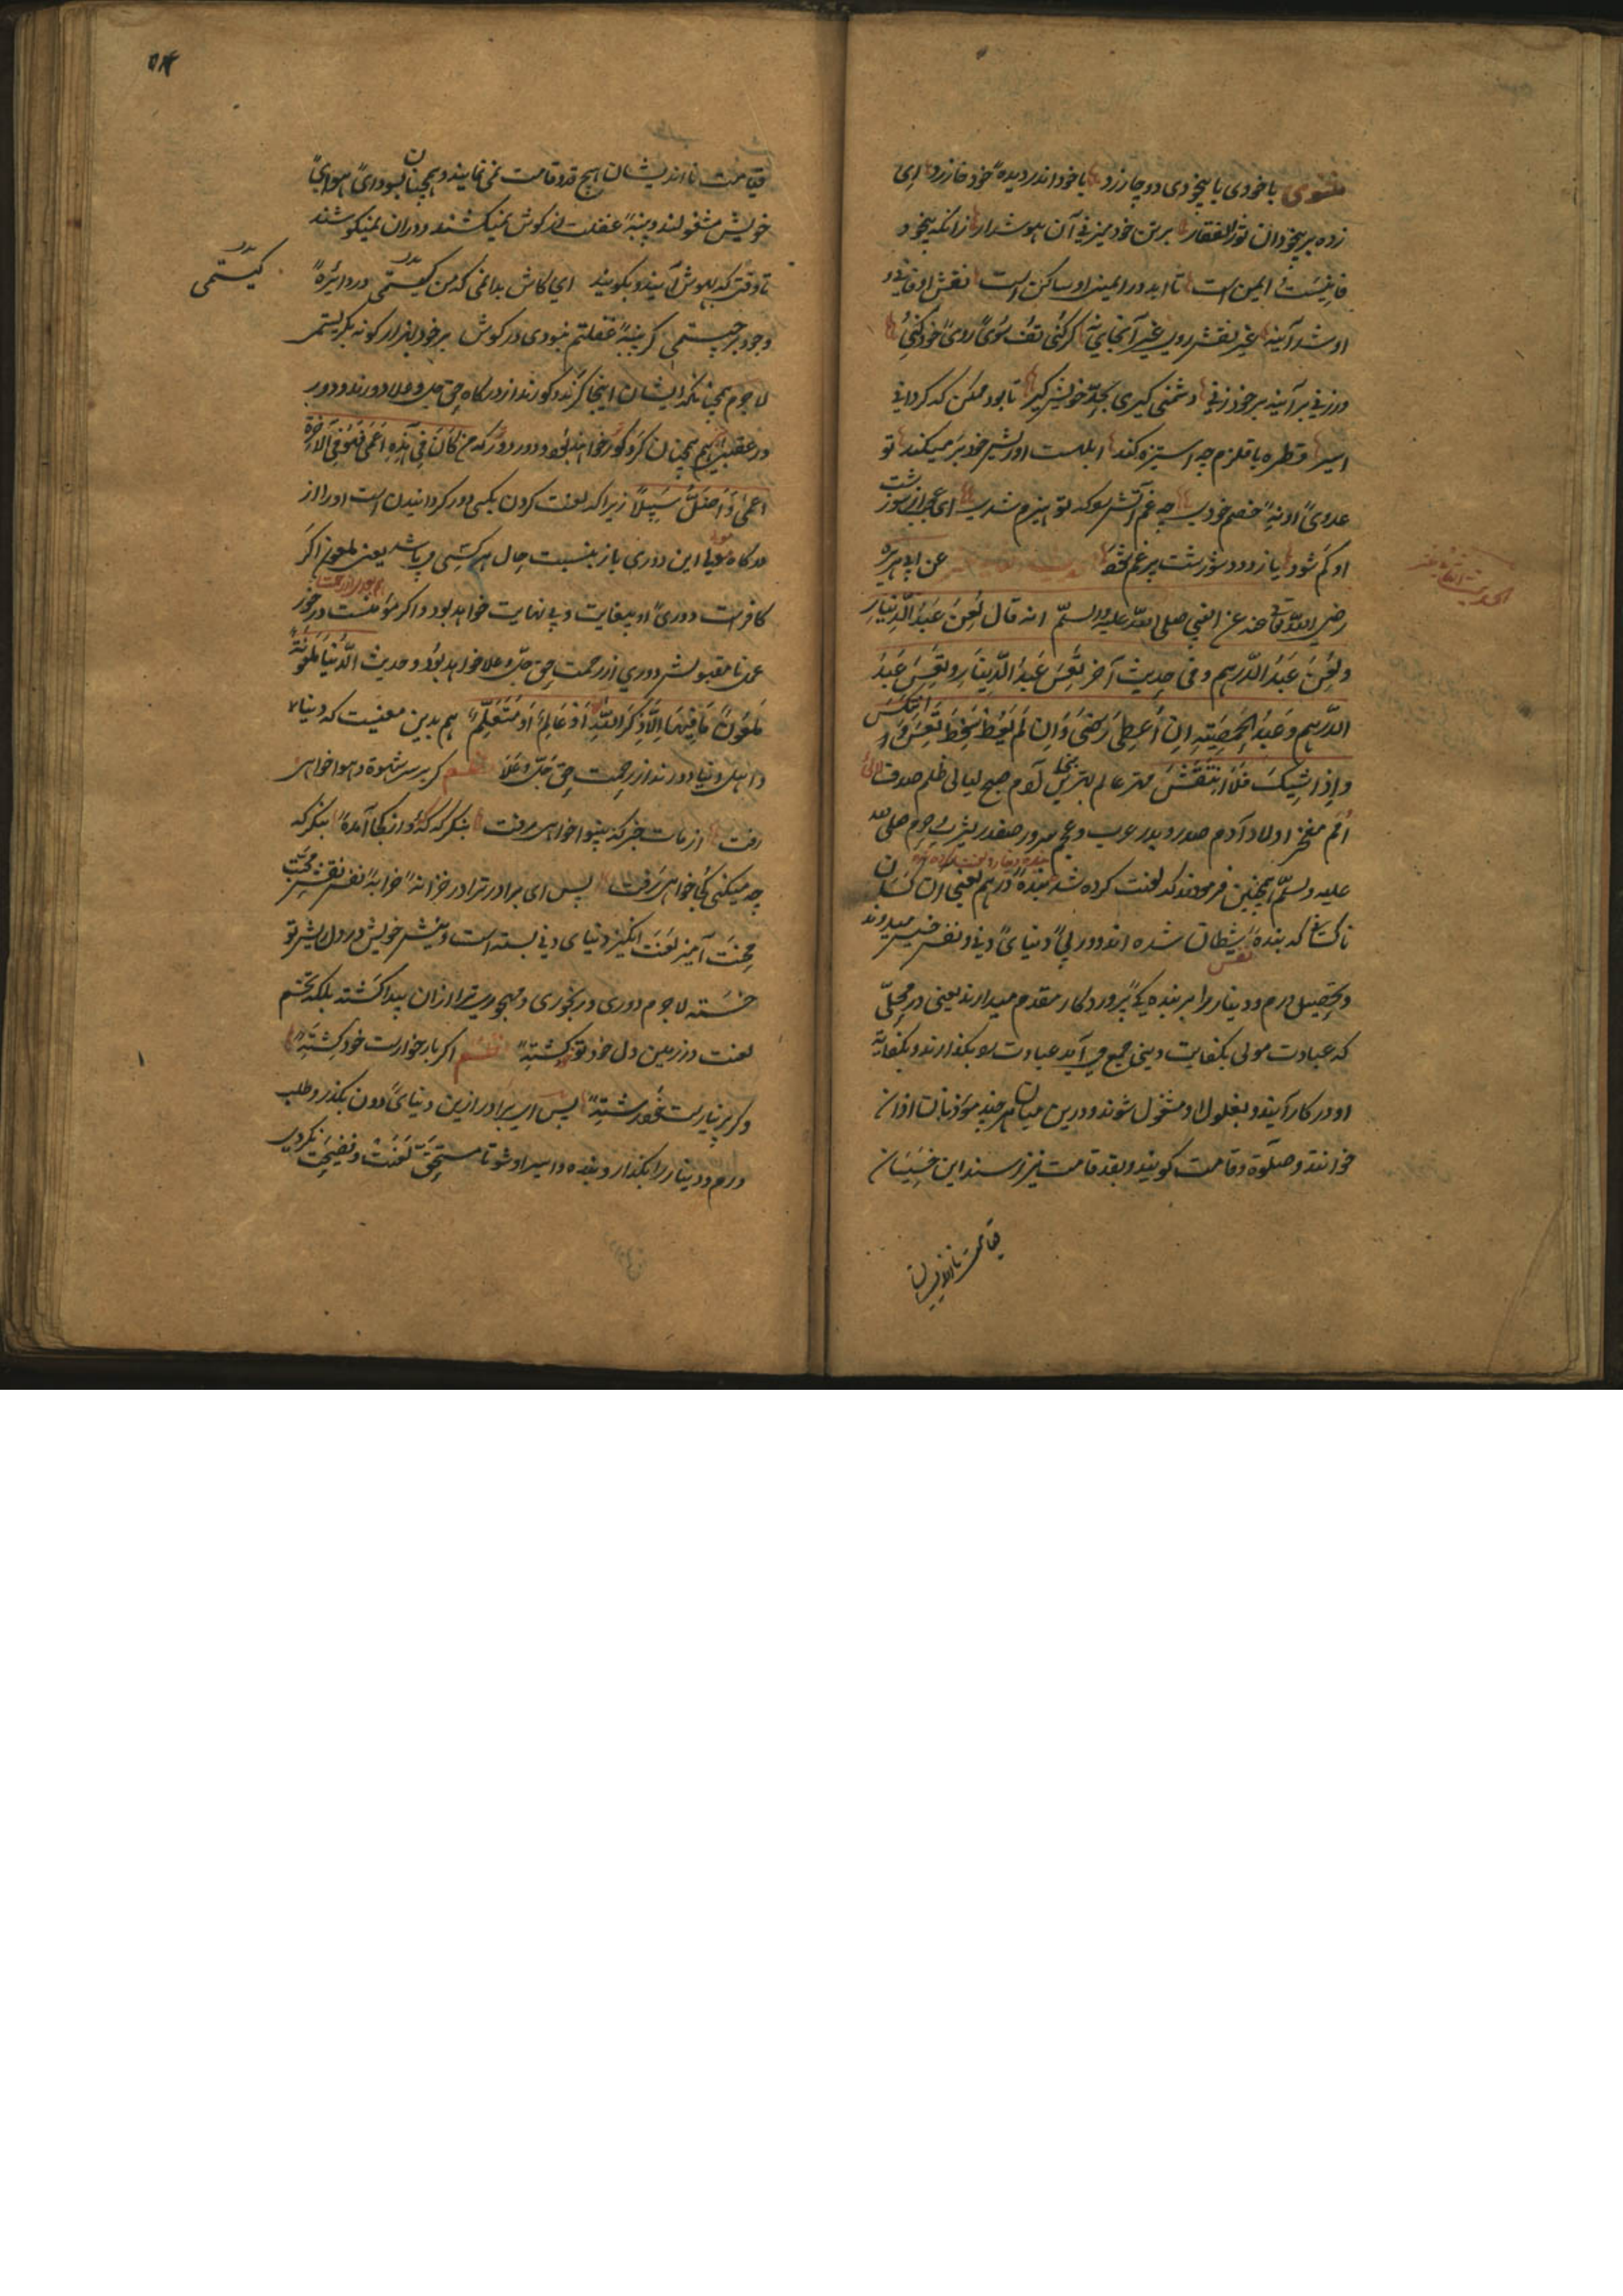 مثنوی با خودی با بیخودی دوچار زد با خود اندر دیدهٔ خود خار زد ای
زده بر بیخودان تو ذوالفقار بر تن خود میزنی آن هوشدار زانکه بیخود
فانیست و ایمن است تا ابد در ایمنی او ساکن است نقش او فانی و
او شد آینه غیر نقش روی غیر آنجای نه گر کنی تف سوی روی خود کنی
ور زنی بر آینه بر خود زنی دشمنی گیری بحد خویش گیر تا بود ممکن که گردانی
اسیر قطره با قلزم چه استیزه کند ابلهست او ریش خود بر میکند تو
عدوی او نهٔ خصم خودی چه غم آتش را که تو هیزم شدی ای عجب از سوزشت
او کم شود یا ز درد سوزشت پر غم شود عن ابی هریره
رضی الله عنه عن النبی صلی الله علیه وسلم انه قال لعن عبد الدینار
ولعن عبد الدرهم وفی حدیث آخر تعس عبد الدینار وتعس عبد
الدرهم وعبد الخمیصة ان أعطی رضی وان لم یعط سخط تعس وانتکس
واذا شیک فلا انتقش مهتر عالم بهترین نجل آدم صبح لیالی ظلم صدف لآلی
امم مفخر اولاد آدم صدر و بدر عرب و عجم سرور صفدر یثرب و حرم صلی الله
علیه وسلم همچنین فرمودند که لعنت کرده شد بندهٔ درهم یعنی آن کسان
ناکسان که بندهٔ شیطان شده اند و در پی دنیای دنی و نفس خسیس میدوند
و تحصیل درم و دینار را بر بندگی پروردگار مقدم میدارند یعنی در محلی
که عبادت مولی بکفایت دینی جمع می آید عبادت را بگذارند و بکفایة
او در کار آیند و بغلول او مشغول شوند و درین میان هر چند مؤذنان اذان
خوانند و صلوة و قامت گویند و بقد قامت نیز رسند این خسیسان
قیامت نااندیشان
قیامت نااندیشان هیچ قد و قامت نمی نمایند و همچنان بسودای هوای
خویش مشغولند و پنبهٔ غفلت از گوش نمیکشند و در آن نمیکوشند
تا وقتی که بهوش آیند و بگویند ای کاش بدانمی که من کیستمی در دائرهٔ
کیستمی
وجود بر چیستمی گر پنبهٔ غفلتم نبودی در گوش بر خود بهزار گونه بگریستمی
لاجرم همچنانکه ایشان اینجا کرند و کورند از درگاه حق جل و علا دورند و دور
در عقبی هم همچنان کر و کور خواهند بود و دور دور که من کان فی هذه اعمی فهو فی الآخرة
اعمی واضل سبیلا زیرا که لعنت کردن یکی دور گردانیدن است او را از
درگاه مولی اما این دوری باز بنسبت حال هر کسی می باشد یعنی ملعون اگر
کافرست دوری او بیغایت و بی نهایت خواهد بود و اگر مؤمنست در خور
عمل نامقبولش دوری از رحمت حق جل و علا خواهد بود و حدیث الدنیا ملعونة
ملعون ما فیها الا ذکر الله او عالم او متعلم هم بدین معنیست که دنیا
و اهل دنیا دورند از رحمت حق جل و علا نظم گر بر سر شهوة و هوا خواهی
رفت از مات خبر که بینوا خواهی رفت بنگر که کهٔ و از کجا آمدهٔ بنگر که
چه میکنی کجا خواهی رفت پس ای برادر ترا در خزانهٔ خرابهٔ نفس نقش محبت
محنت آمیز لعنت انگیز دنیای دنی بسته است و نیش خویش در دل ریش تو
خسته لاجرم دوری و رنجوری و مهجوری ترا از آن پیدا گشته بلکه تخم
لعنت در زمین دل خود تو کشتهٔ نظم اگر بار خارست خود کشتهٔ
و گر پرنیانست خود رشتهٔ پس ای برادر ازین دنیای دون بگذر و طلب
درم و دینار را بگذار و بنده و اسیر او مشو تا مستحق لعنت و فضیحت نگردی